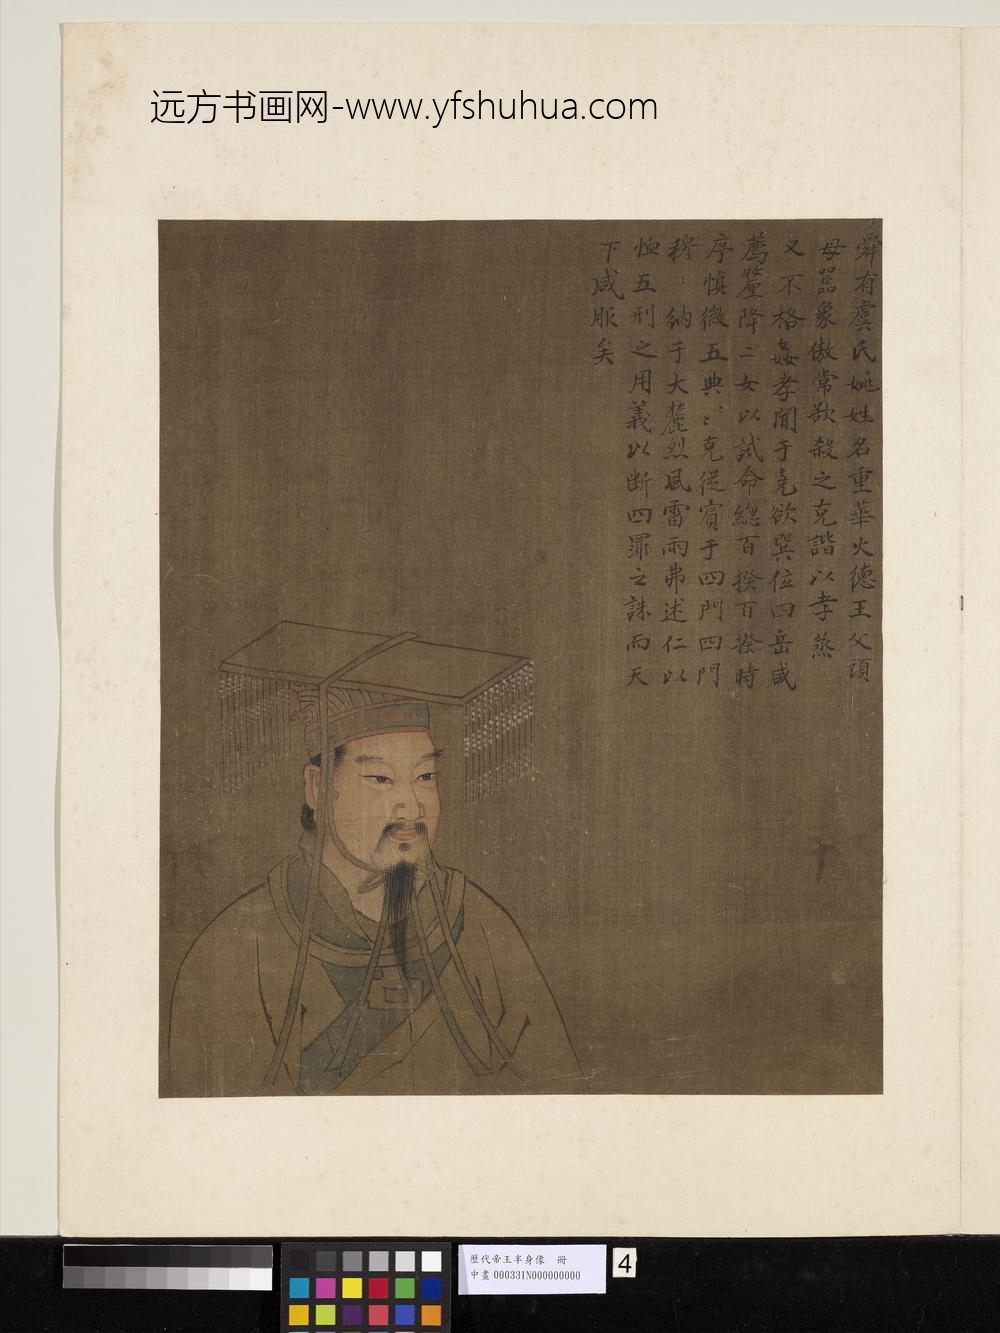 远方书画网-www.yfshuhua.com
舜有虞氏姚姓名重華火德王父頊
母嚚象傲常欲殺之克諧以孝烝
又不格姦孝聞于堯欲巽位四岳咸
薦釐降二女以試命總百揆百揆時
序慎徽五典〻〻克從賓于四門四門
穆〻納于大麓烈風雷雨弗述仁以
恤五刑之用義以断四罪之誅而天
下咸服矣
歷代帝王半身像 冊
中畫 000331N000000000
4